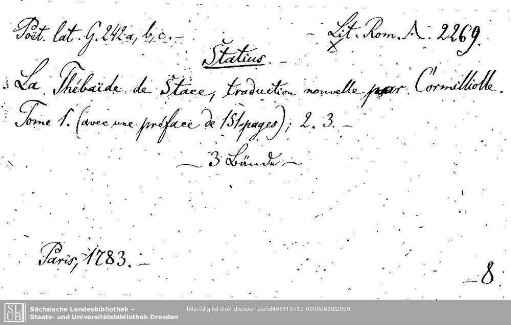 Poët. lat. G. 242a, b, c. –
Lit. Rom. A. 2269.
Statius. –
La Thébaïde de Stace, traduction nouvelle par Cormilliolle.
Tome 1. (avec une préface de 151 pages); 2. 3. –
– 3 Bände. –
Paris, 1783. –
– 8
SLUB
Sächsische Landesbibliothek –
Staats- und Universitätsbibliothek Dresden